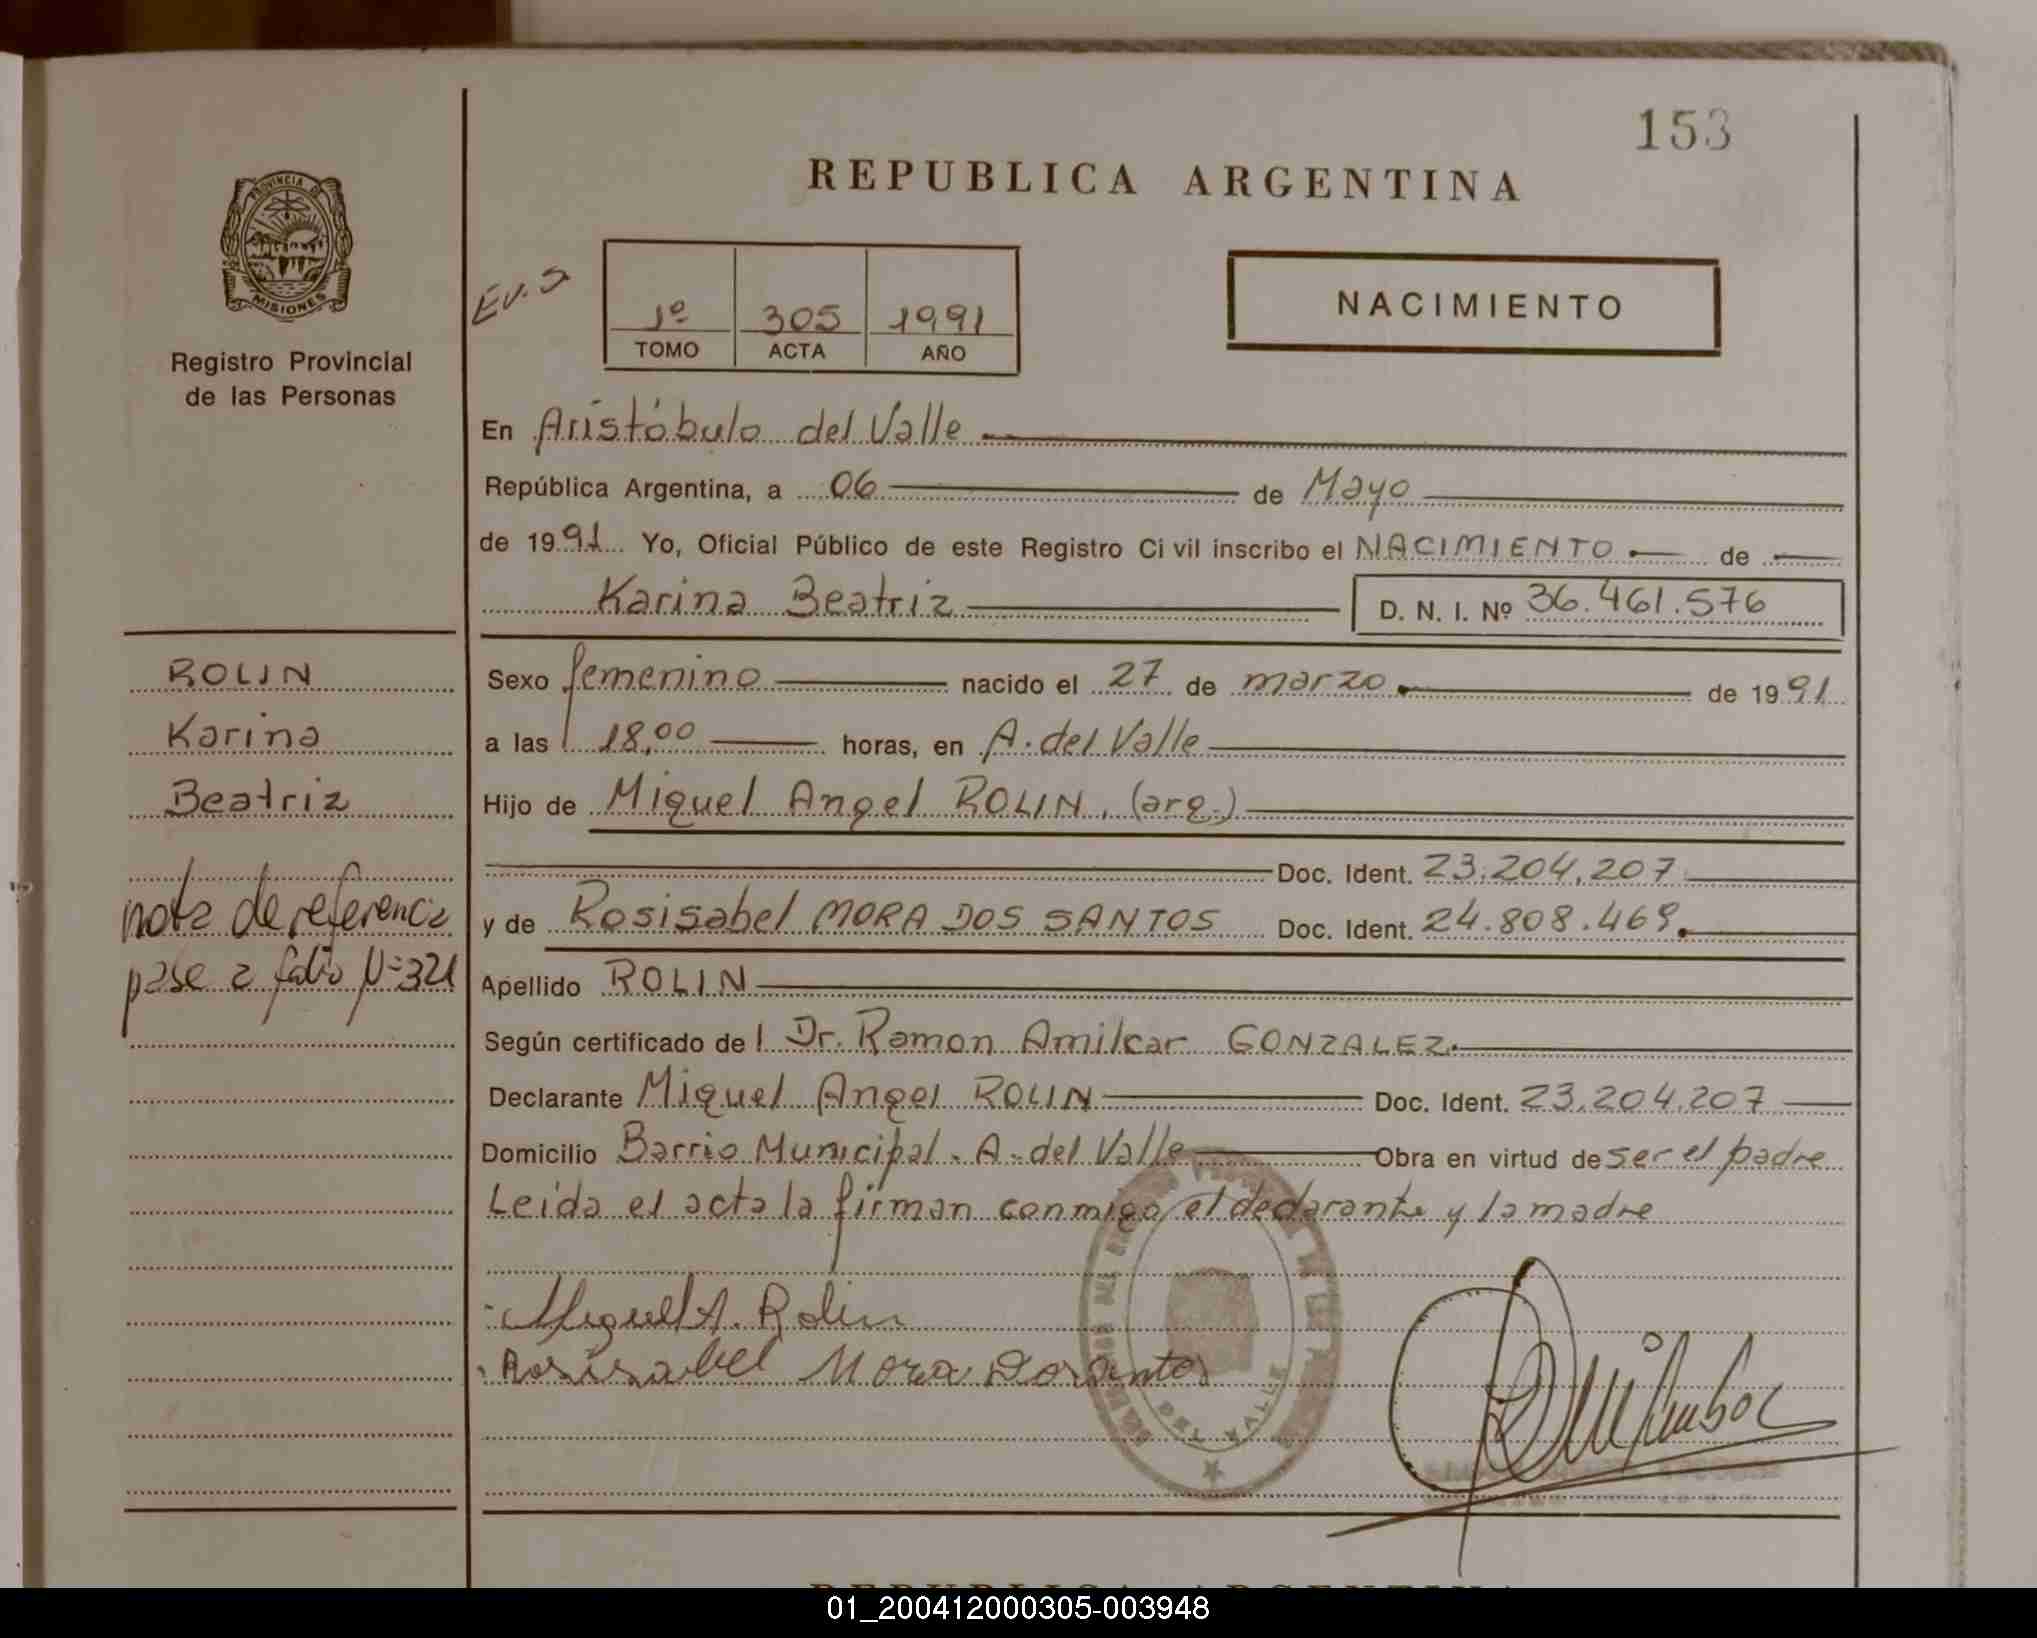 153
REPUBLICA ARGENTINA
PROVINCIA DE
MISIONES
Registro Provincial
de las Personas
Ev. S
1º 305 1991
TOMO ACTA AÑO
NACIMIENTO
En Aristóbulo del Valle
República Argentina, a 06 de Mayo
de 1991 Yo, Oficial Público de este Registro Civil inscribo el NACIMIENTO de
Karina Beatriz D. N. I. Nº 36.461.576
ROLIN
Karina
Beatriz
nota de referencia
pase a folio Nº 321
Sexo femenino nacido el 27 de marzo de 1991
a las 18,00 horas, en A. del Valle
Hijo de Miguel Angel ROLIN, (arg.)
Doc. Ident. 23.204.207
y de Rosisabel MORA DOS SANTOS Doc. Ident. 24.808.469.
Apellido ROLIN
Según certificado del Dr. Ramon Amilcar GONZALEZ.
Declarante Miguel Angel ROLIN Doc. Ident. 23.204.207
Domicilio Barrio Municipal. A. del Valle Obra en virtud de ser el padre
Leida el acta la firman conmigo el declarante y la madre
Miguel A. Rolin
Rosisabel Mora Dosantos
DEL VALLE
REPUBLICA ARGENTINA
01_200412000305-003948